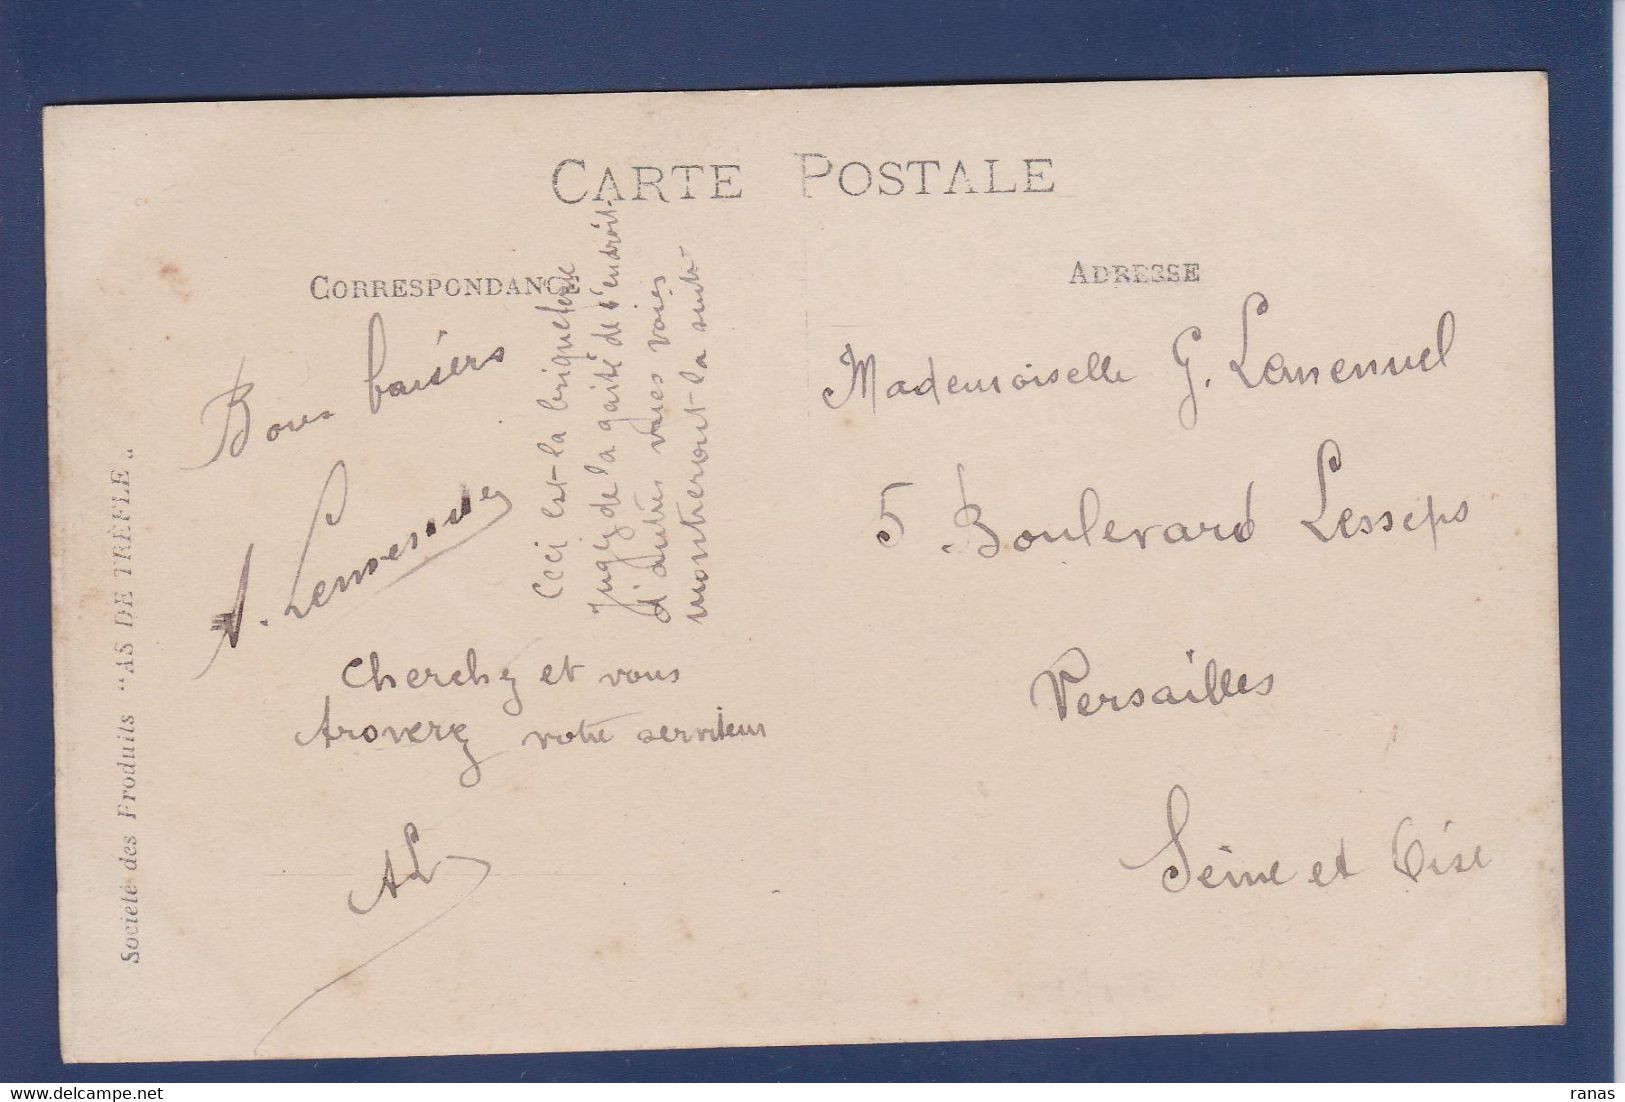 CARTE POSTALE
CORRESPONDANCE
ADRESSE
Bons baisers
A.
Ceci est la briqueterie
Jugez de la gaité de l'endroit.
d'autres vues
montreront la suite
Cherchez et vous
troverez votre serviteur
AL
Mademoiselle G. Lemenuel
5 Boulevard Lesseps
Versailles
Seine et Oise
Société des Produits "AS DE TRÈFLE"
delcampe.net
ranas